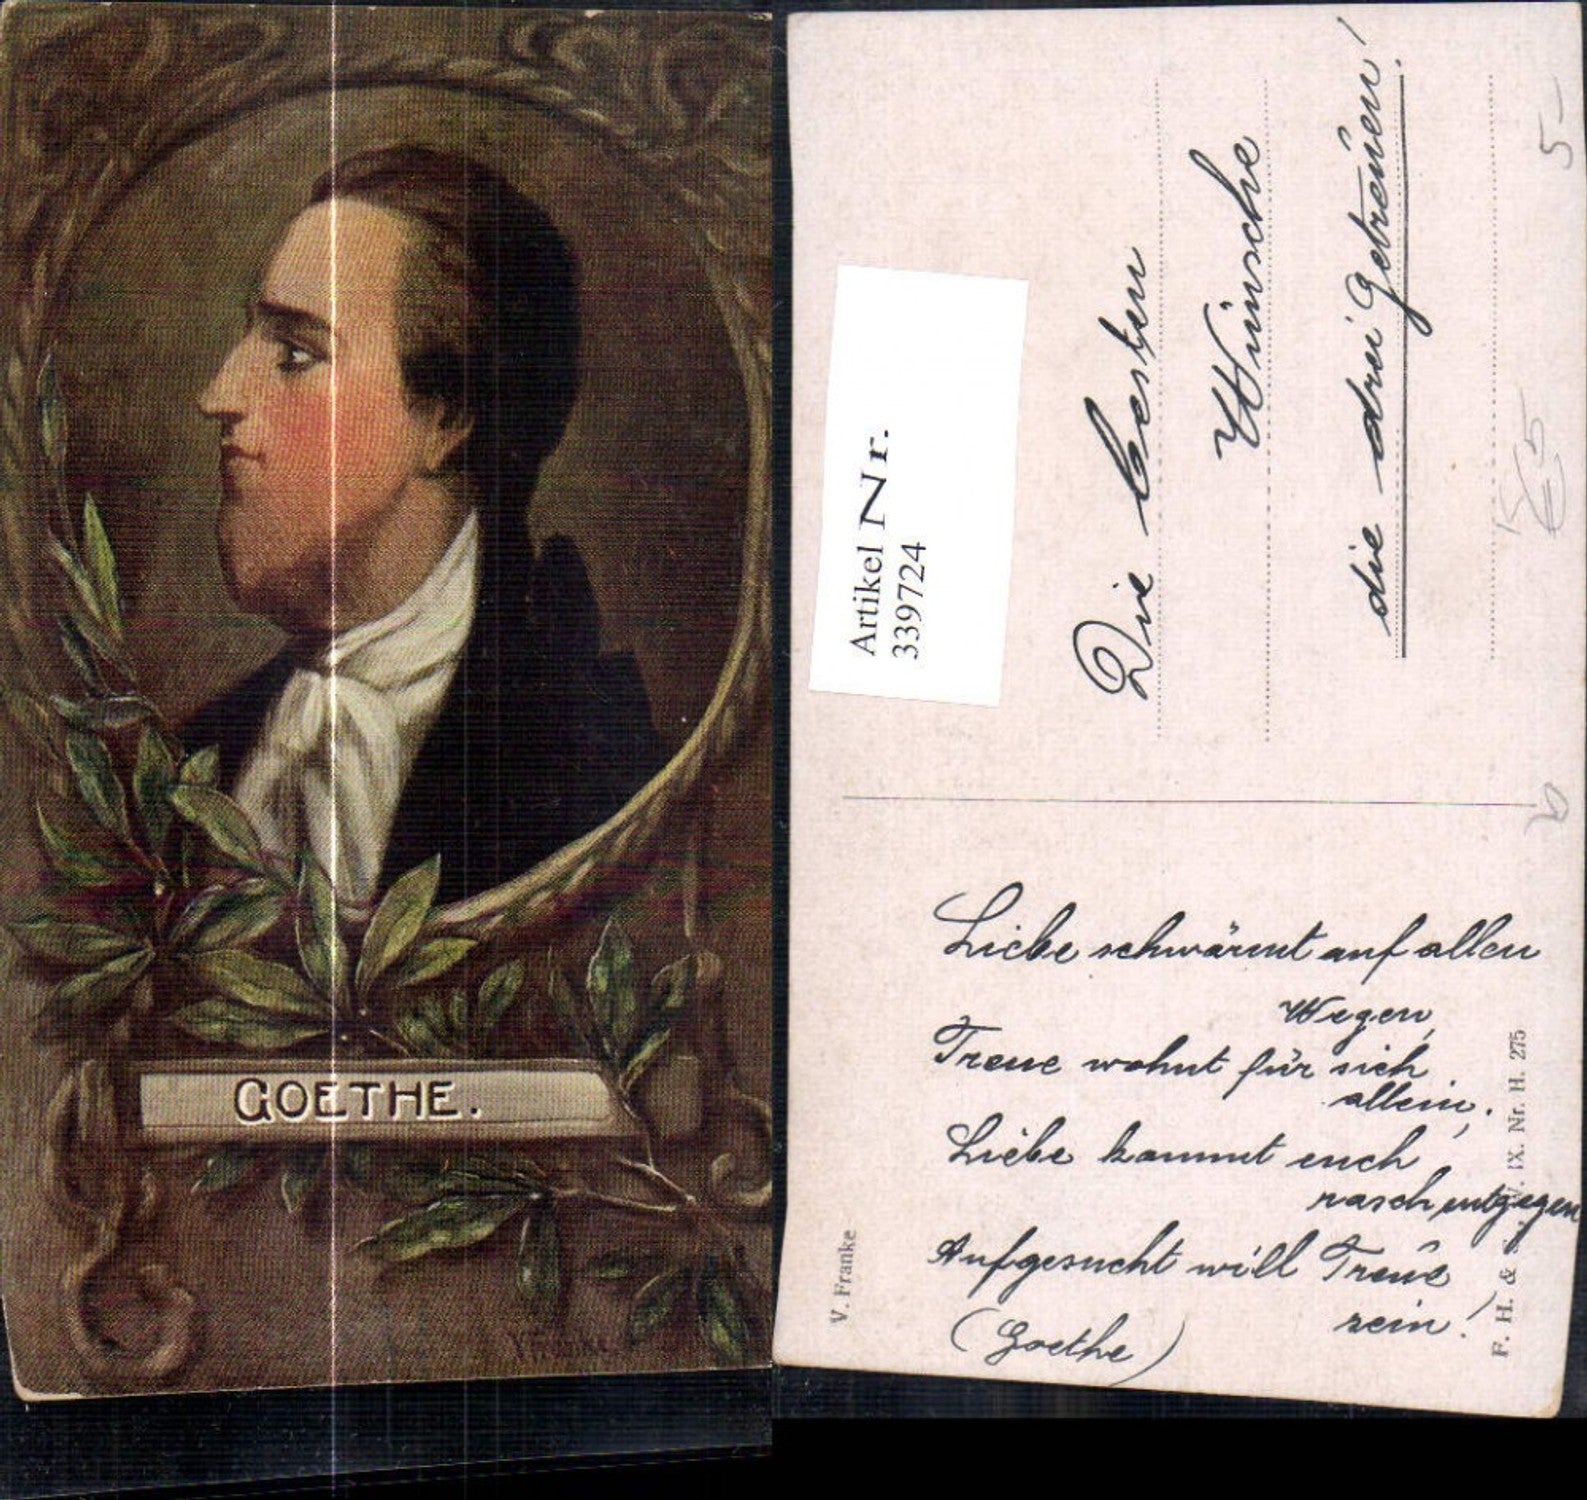 GOETHE.
V Franke
Artikel Nr.
339724
Die besten
Wünsche
die drei Getreuen!
5-
€5
Liebe schwärmt auf allen
Wegen,
Treue wohnt für sich
allein,
Liebe kommt euch
rasch entgegen
Aufgesucht will Treue
sein!
(Goethe)
V. Franke
F. H. & S. W. IX. Nr. H. 275